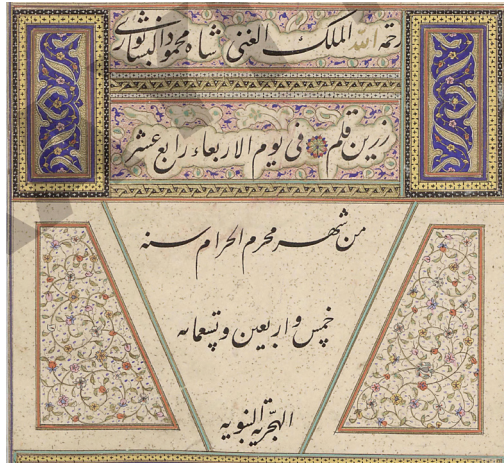 رحمة الله الملك الغنی شاه محمود النیشابوری
زرین قلم فی یوم الاربعاء رابع عشر
من شهر محرم الحرام سنه
خمس و اربعین و تسعمائه
الهجریه النبویه